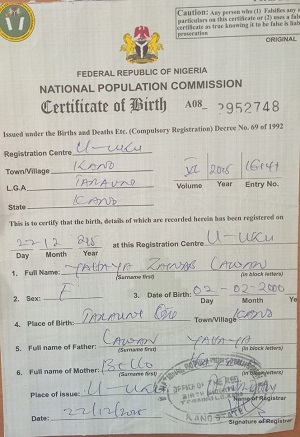 Caution: Any person who (1) Falsifies any
particulars on this certificate or (2) uses a
certificate as true knowing it to be false is
prosecution
ORIGINAL
FEDERAL REPUBLIC OF NIGERIA
NATIONAL POPULATION COMMISSION
Certificate of Birth A08_ 2952748
Issued under the Births and Deaths Etc. (Compulsory Registration) Decree No. 69 of 1992
Registration Centre U-UKU
Town/Village KANO
L.G.A TARAUNI
State KANO
VI 2015 16141
Volume Year Entry No.
This is to certify that the birth, details of which are recorded herein has been registered on
22 12 2015 at this Registration Centre U-UKU
Day Month Year
1. Full Name: YAHAYA ZAINAB LAWAN
(Surname first) (in block letters)
2. Sex: F 3. Date of Birth: 02-02-2000
Day Month Ye
4. Place of Birth: TARAUNI Town/Village KANO
5. Full name of Father: LAWAN YAHAYA
(Surname first) (in block letters)
6. Full name of Mother: BELLO
(Surname first) (in block letters)
Place of issue: U-UKU
Name of Registrar
Date: 22/12/2015
Signature of Registrar